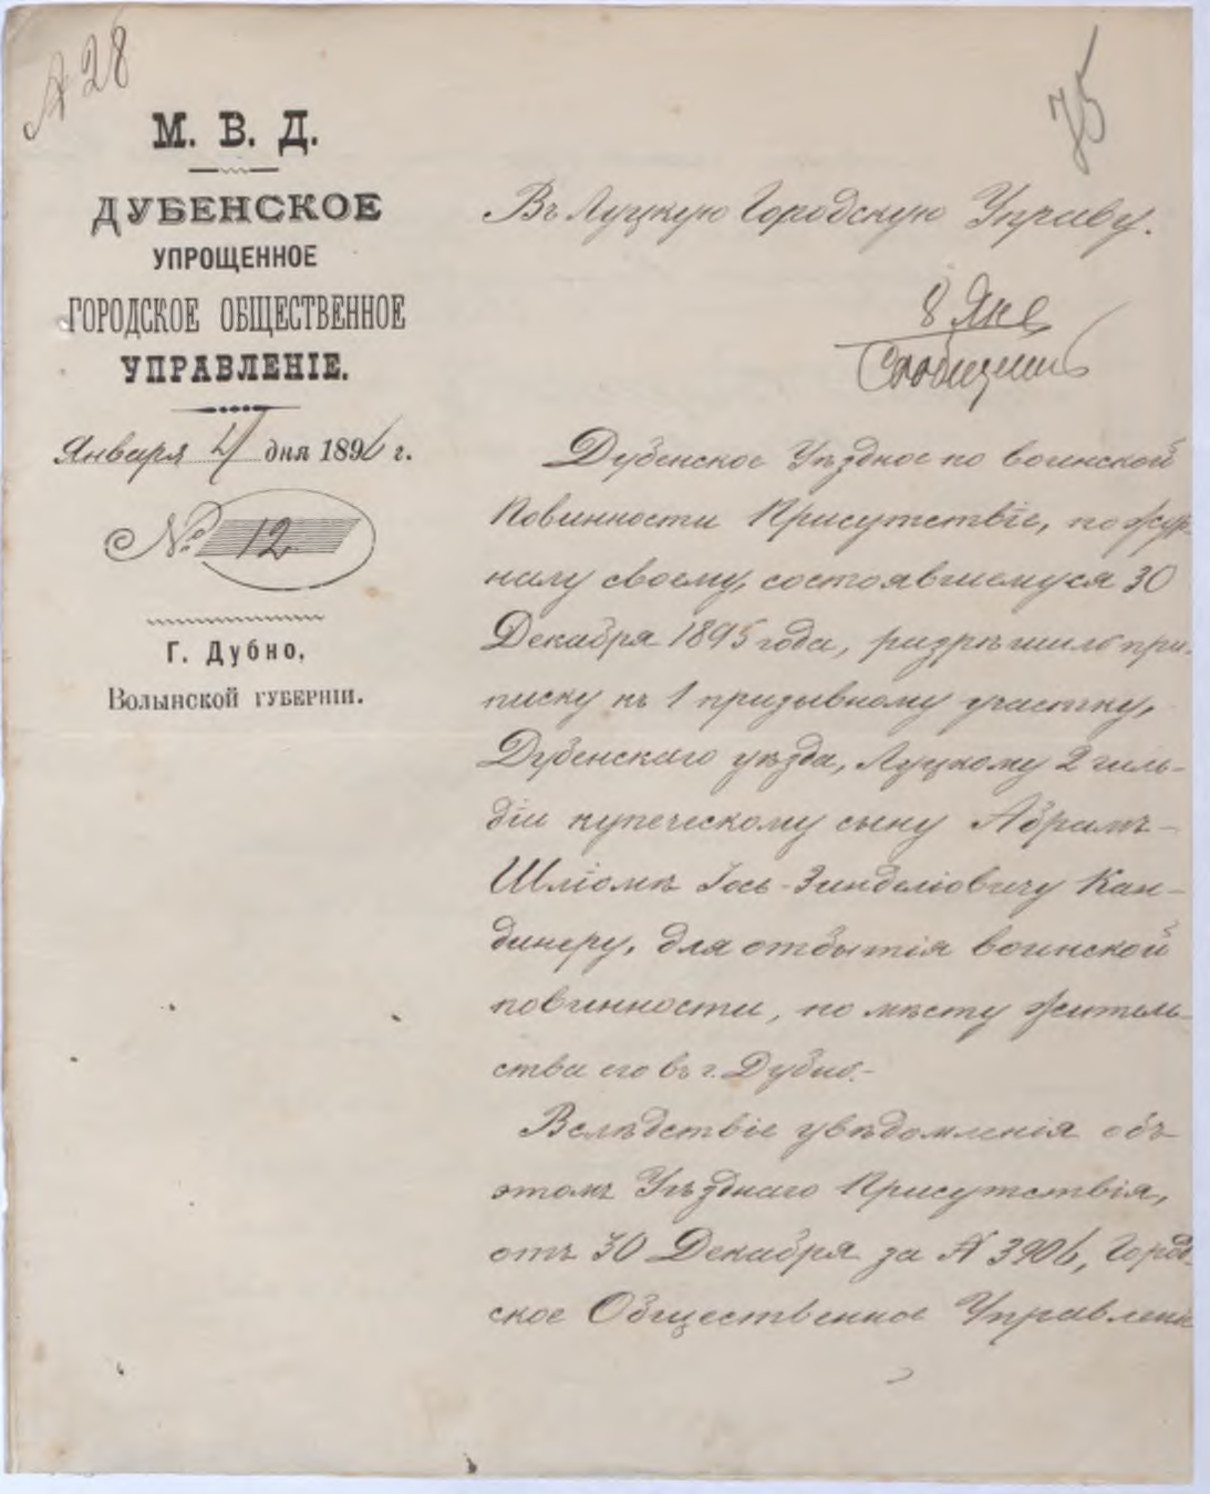 № 28
75
М. В. Д.
ДУБЕНСКОЕ
УПРОЩЕННОЕ
ГОРОДСКОЕ ОБЩЕСТВЕННОЕ
УПРАВЛЕНІЕ.
Января 4 дня 1896 г.
№ 12
Г. Дубно,
Волынской губерніи.
Въ Луцкую Городскую Управу.
8 Янв
Сообщить
Дубенское Уѣздное по воинской
Повинности Присутствіе, по жур-
налу своему, состоявшемуся 30
Декабря 1895 года, разрѣшило при-
писку къ 1 призывному участку,
Дубенскаго уѣзда, Луцкому 2 гиль-
діи купеческому сыну Абрамъ-
Шліомѣ Іось-Зинделіовичу Кан-
динеру, для отбытія воинской
повинности, по мѣсту житель-
ства его въ г. Дубно.-
Вслѣдствіе увѣдомленія объ
этомъ Уѣзднаго Присутствія,
отъ 30 Декабря за № 3906, Город-
ское Общественное Управленіе